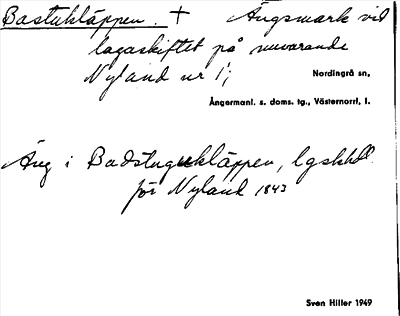 Bastukläppen. + Ängsmark vid
lagaskiftet på nuvarande
Nyland nr 1;
Nordingrå sn,
Ångermanl. s. doms. tg., Västernorrl, l.
Äng i Badstugukläppen, lgskhdl
för Nyland 1843
Sven Hiller 1949